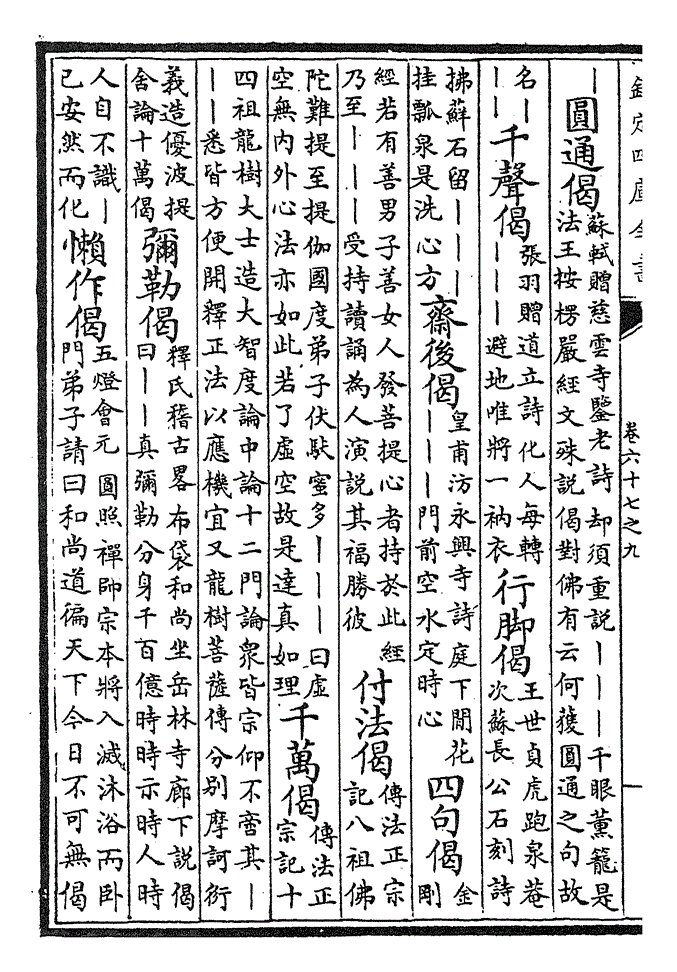 欽定四庫全書 卷六十七之九 一
｜
圓通偈
蘇軾贈慈雲寺鑒老詩却須重説｜｜｜千眼薰籠是
法王按楞嚴經文殊説偈對佛有云何獲圓通之句故
名｜
｜｜
千聲偈
張羽贈道立詩化人每轉
｜｜｜避地唯將一衲衣
行脚偈
王世貞虎跑泉菴
次蘇長公石刻詩
拂蘚石留｜｜｜
挂瓢泉是洗心方
齋後偈
皇甫汸永興寺詩庭下閒花
｜｜｜門前空水定時心
四句偈
金
剛
經若有善男子善女人發菩提心者持於此經
乃至｜｜｜受持讀誦為人演説其福勝彼
付法偈
傳法正宗
記八祖佛
陀難提至提伽國度弟子伏馱蜜多｜｜｜曰虛
空無内外心法亦如此若了虛空故是達真如理
千萬偈
傳法正
宗記十
四祖龍樹大士造大智度論中論十二門論衆皆宗仰不啻其｜
｜｜悉皆方便開釋正法以應機宜又龍樹菩薩傳分别摩訶衍
義造優波提
舍論十萬偈
彌勒偈
釋氏稽古畧布袋和尚坐岳林寺廊下説偈
曰｜｜真彌勒分身千百億時時示時人時
人自不識｜
已安然而化
懶作偈
五燈會元圓照禪師宗本將入滅沐浴而卧
門弟子請曰和尚道徧天下今日不可無偈